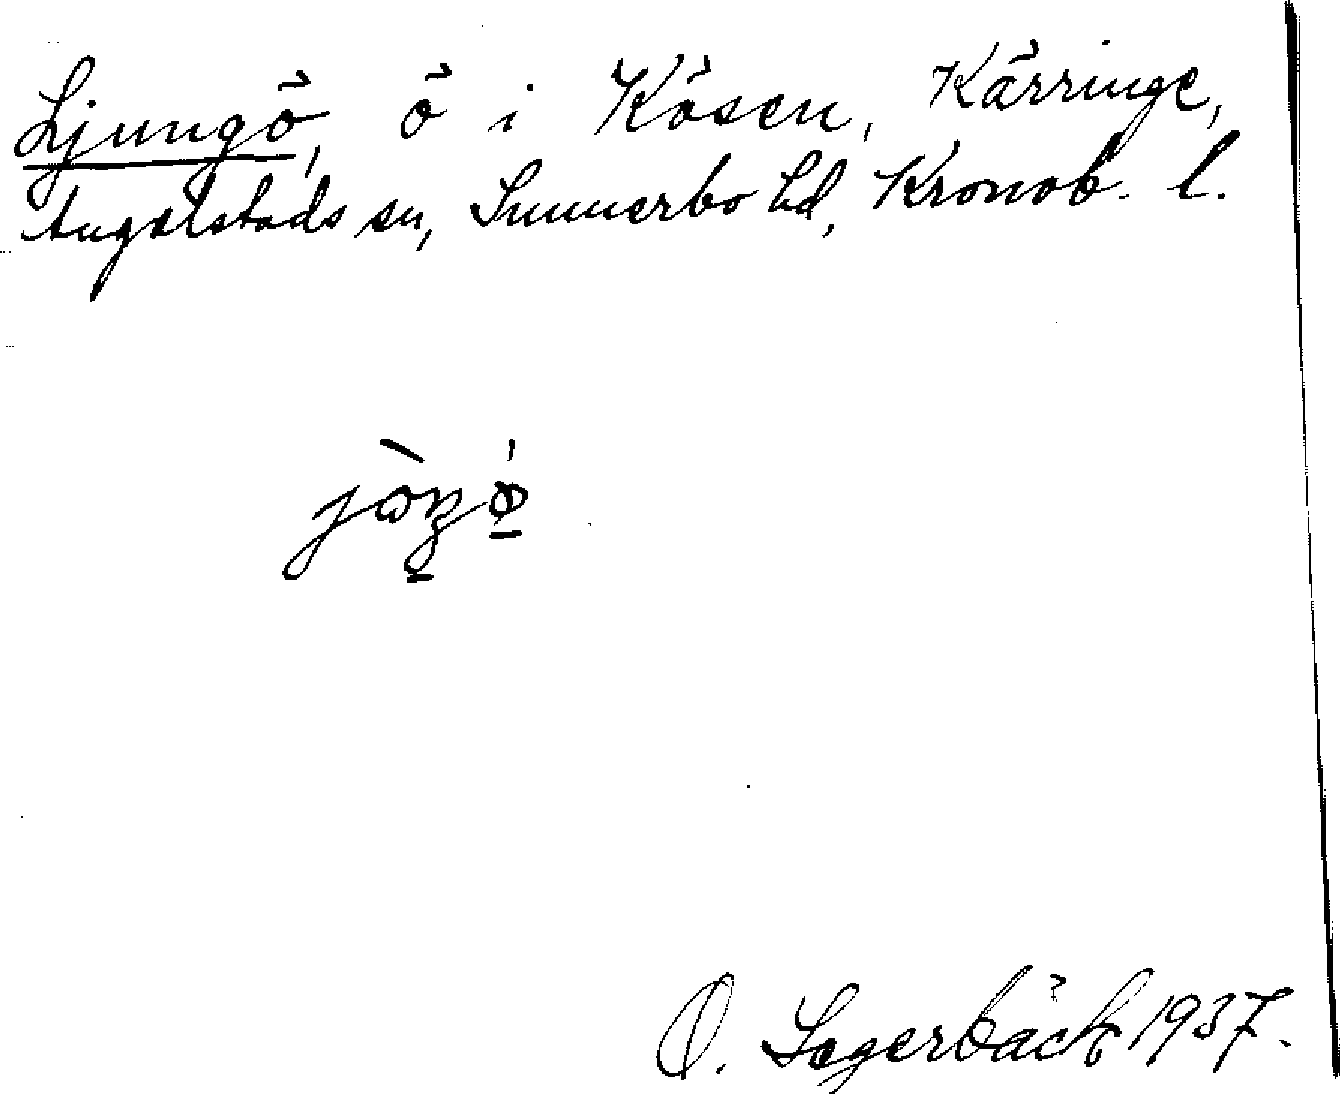 Ljungö, ö i Kösen, Kärringe,
Angelstads sn, Sunnerbo hd, Kronob. l.
O. Segerbäck 1937.